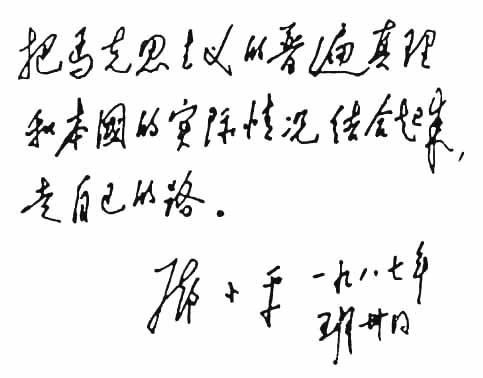 把马克思主义的普遍真理
和本國的实际情况结合起来，
走自己的路。
邓小平 一九八七年
卅日